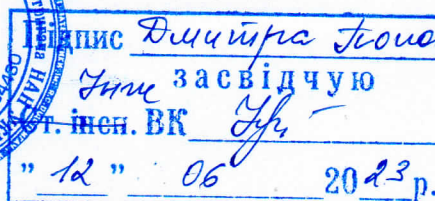 Підпис Дмитра Попо
Інж засвідчую
Ст. інсп. ВК
" 12 " 06 2023 р.